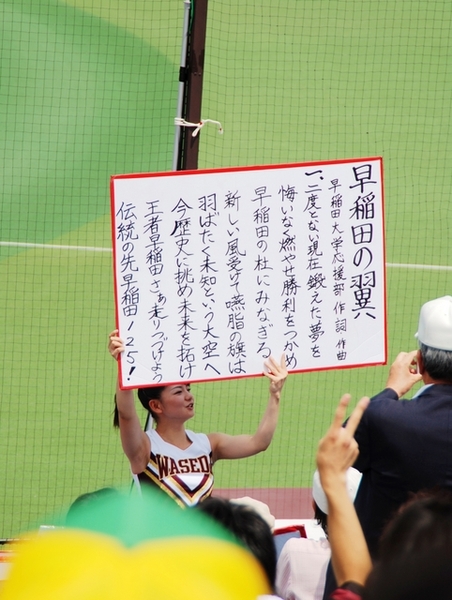 早稲田の翼
早稲田大学応援部 作詞 作曲
一、二度とない現在 鍛えた夢を
悔いなく燃やせ勝利をつかめ
早稲田の杜にみなぎる
新しい風受けて臙脂の旗は
羽ばたく未知という大空へ
今歴史に挑め未来を拓け
王者早稲田さぁ走りつづけよう
伝統の先早稲田125!
WASEDA